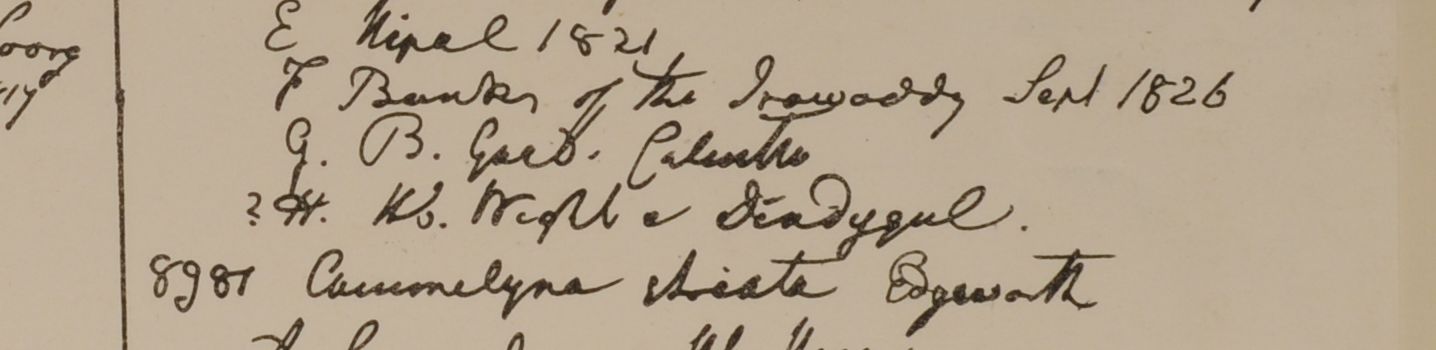 E Nipal 1821
F Banks of the Irawaddy Sept 1826
G. B. Gard. Calcutta
? H. Hb. Wight e Dindygul.
8981 Commelyna striata Edgeworth